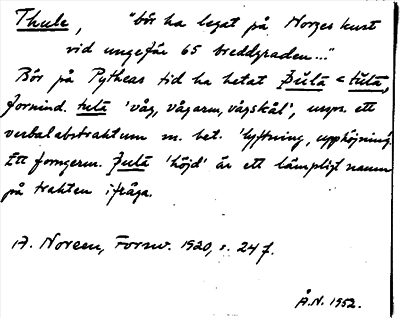 Thule, "bör ha legat på Norges kust
vid ungefär 65 breddgraden..."
Bör på Pytheas tid ha hetat Þūlā < tūlā,
fornind. tulā 'våg, vågarm, vågskål', urspr. ett
verbalabstraktum m. bet. 'lyftning, upphöjning'.
Ett forngerm. Þulā 'höjd' är ett lämpligt namn
på trakten ifråga.
A. Noreen, Fornv. 1920, s. 24 f.
Å.N. 1952.